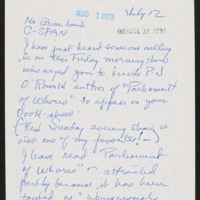 AUG 1 1991
July 12
Mr Brian Lamb
C-SPAN
I have just heard someone calling
in on the Friday morning show
who urged you to invite P.J.
O'Rourke author of "Parliament
of Whores" to appear on your
book show!
(That Sunday evening show is
also one of my favorites! -)
I have read "Parliament
of Whores" - attracted
partly because it has been
touted as "uproariously